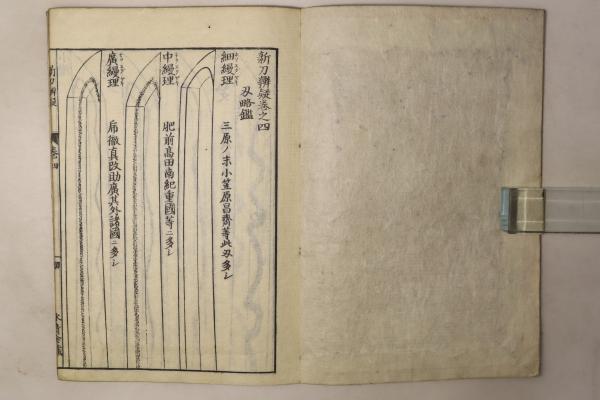 新刀辨疑巻之四
刄略鑑
細縵理
三原ノ末小笠原昌齋等此刄多シ
中縵理
肥前髙田南紀重國等ニ多シ
廣縵理
帰徹真改助廣其外諸國ニ多シ
新刀辨疑
巻四